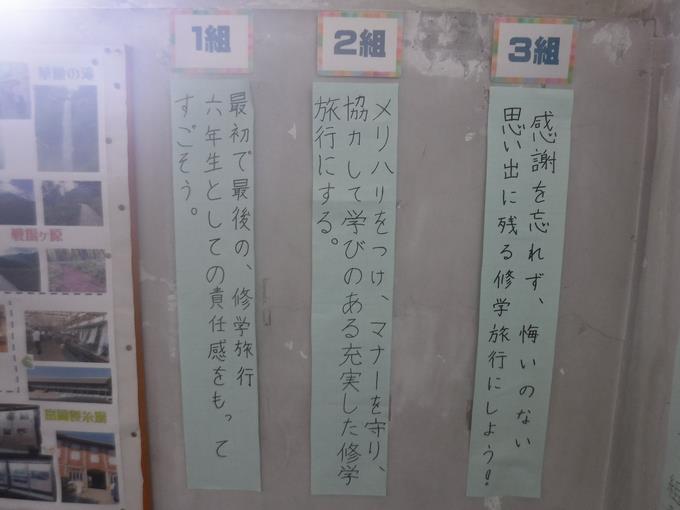 1組
最初で最後の、修学旅行
六年生としての責任感をもって
すごそう。
2組
メリハリをつけ、マナーを守り、
協力して学びのある充実した修学
旅行にする。
3組
感謝を忘れず、悔いのない
思い出に残る修学旅行にしよう!
華厳の滝
戦場ヶ原
富岡製糸場